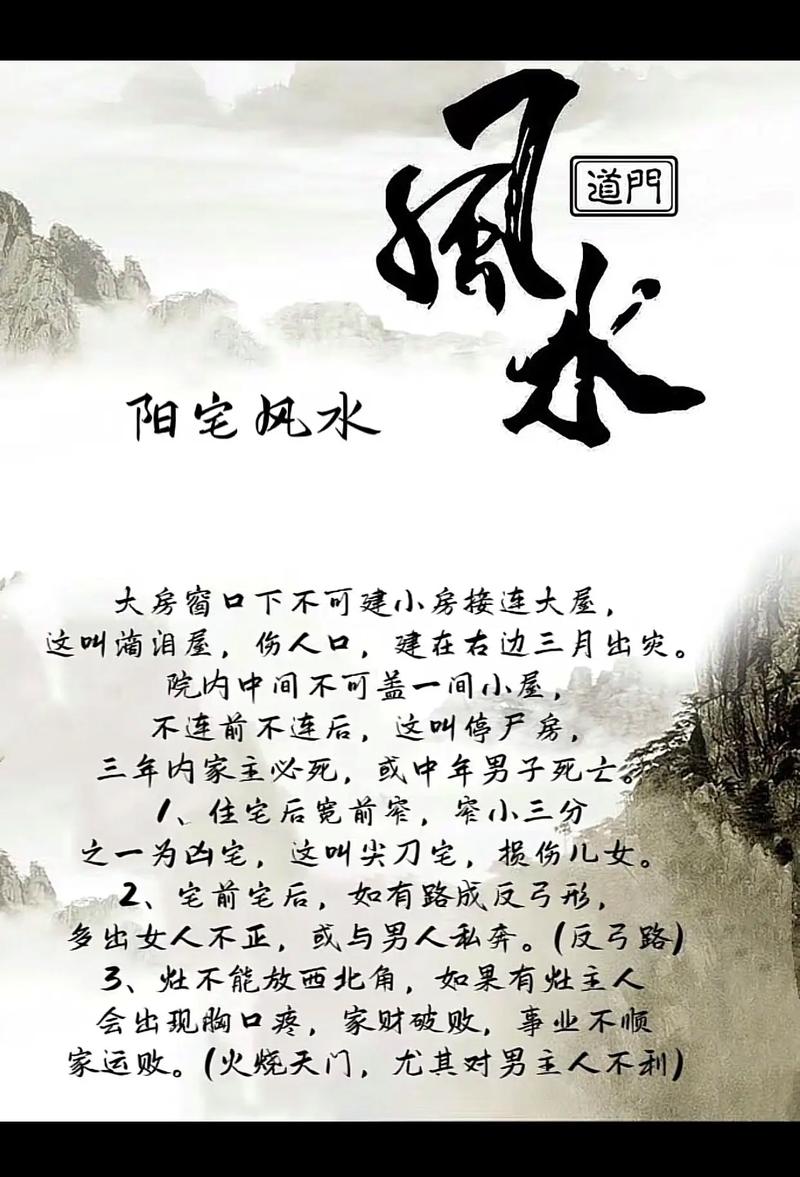 風水
道門
阳宅风水
大房窗口下不可建小房接连大屋，
这叫滴泪屋，伤人口，建在右边三月出灾。
院内中间不可盖一间小屋，
不连前不连后，这叫停尸房，
三年内家主必死，或中年男子死亡。
1、住宅后宽前窄，窄小三分
之一为凶宅，这叫尖刀宅，损伤儿女。
2、宅前宅后，如有路成反弓形，
多出女人不正，或与男人私奔。(反弓路)
3、灶不能放西北角，如果有灶主人
会出现胸口疼，家财破败，事业不顺
家运败。(火烧天门，尤其对男主人不利)